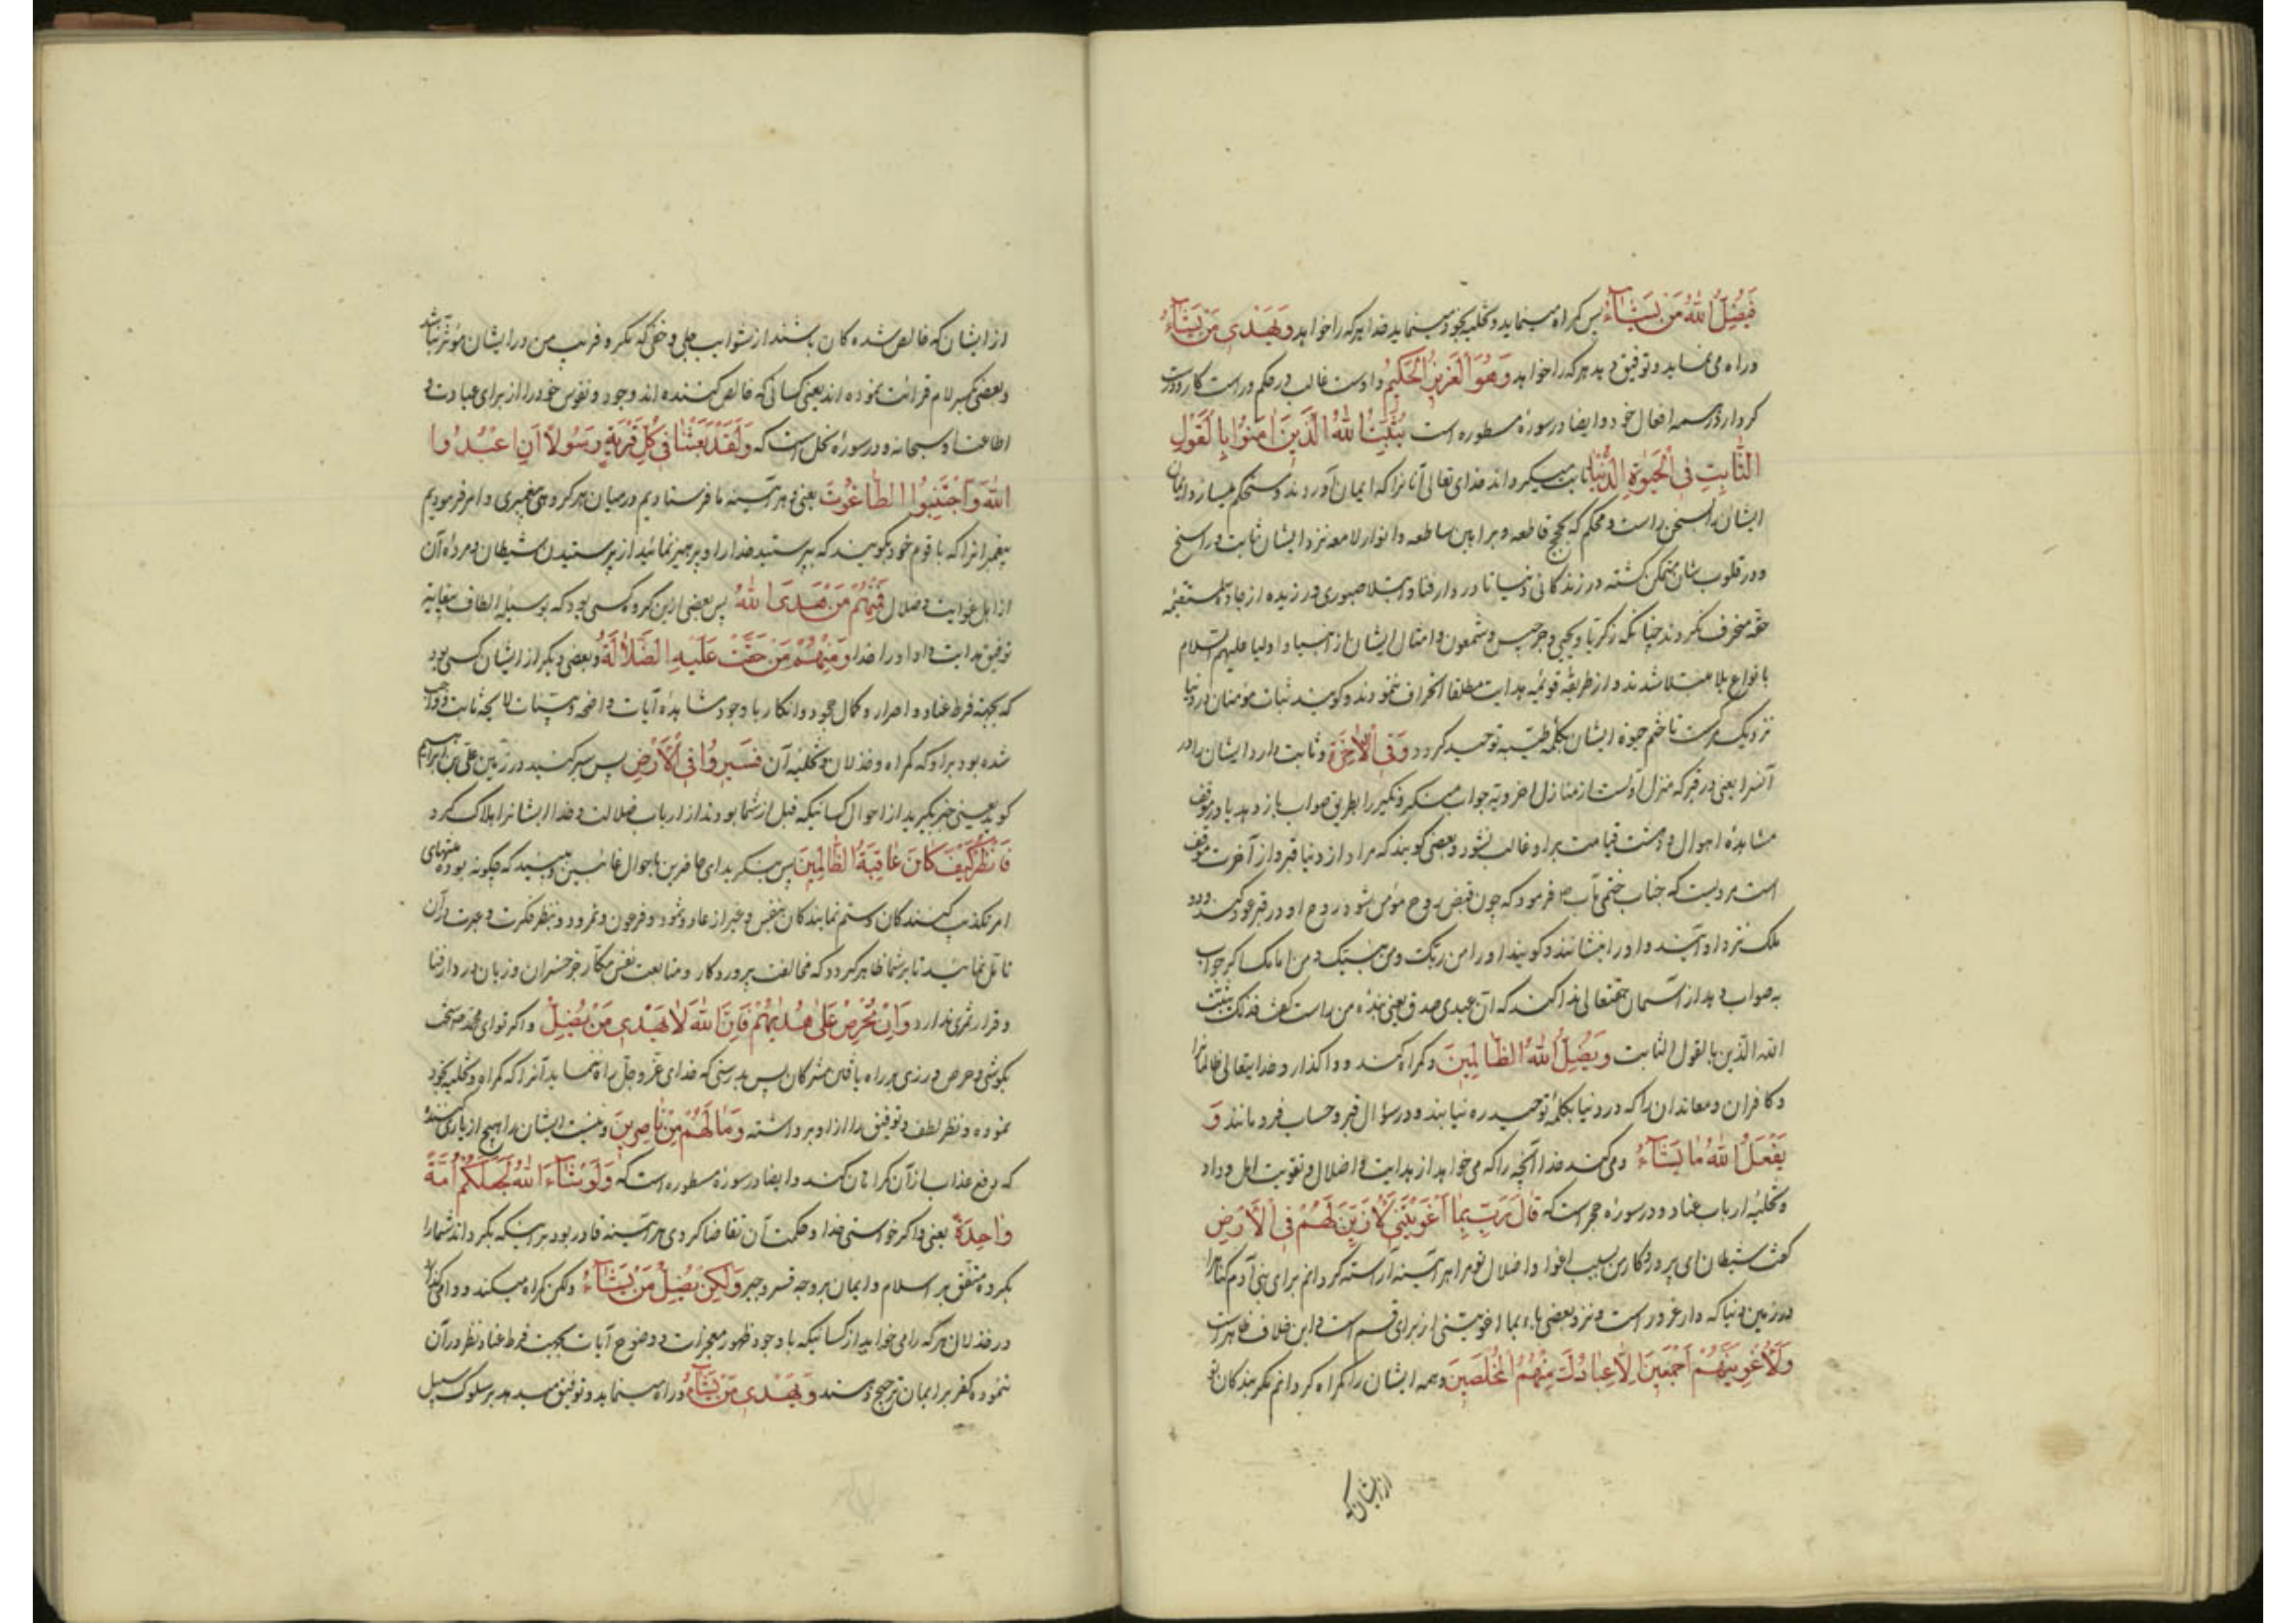 فَيُضِلُّ اللّٰهُ مَنْ يَشَآءُ پس گمراه مینماید و تخلیه بخود مینماید خدا هر که را خواهد وَيَهْدِى مَنْ يَشَآءُ
و راه می نماید و توفیق دهد هر که را خواهد وَهُوَ الْعَزِيزُ الْحَكِيمُ و اوست غالب در حکم و راست کار و درست
کردار در همه افعال خود و ایضا در سوره مسطوره است يُثَبِّتُ اللّٰهُ الَّذِينَ اٰمَنُوا بِالْقَوْلِ
الثَّابِتِ فِى الْحَيٰوةِ الدُّنْيَا ثابت میگرداند خدای تعالی آنانرا که ایمان آوردند و مستحکم میسازد ایمان
ایشان را بسخن راست و محکم که بحجج قاطعه و براهین ساطعه و انوار لامعه نزد ایشان ثابت و راسخ
و در قلوب شان متمکن گشته در زندگانی دنیا تا در دار فنا و ابتلا صبوری ورزیده از جادۀ مستقیمه
حقه منحرف نگردند چنانکه زکریا و یحیی و جرجیس و شمعون و امثال ایشان از انبیا و اولیا علیهم السلام
با نواع بلا مبتلا شدند و از طریقه قویمه هدایت مطلقا انحراف ننمودند و گویند ثبات مؤمنان در دنیا
نزدیک مرگست تا ختم حیوة ایشان بکلمه طیبه توحید گردد وَفِى الْاٰخِرَةِ و ثابت دارد ایشان را در
آنسرا یعنی در قبر که منزل اولست از منازل اخرویه جواب منکر و نکیر را بطریق صواب باز دهد یا در موقف
مشاهدۀ اهوال و دهشت قیامت بر او غالب نشود و بعضی گویند که مراد از دنیا قبر و از آخرت موقف
است مرویست که جناب ختمی مآب ص فرمود که چون قبض روح مؤمن شود روح او در قبر عود کند و دو
ملک نزد او آیند و او را بنشانند و گویند او را من ربک و من نبیک و من امامک اگر جواب
به صواب دهد از آسمان حقتعالی ندا کند که آن عبدی صدق یعنی بنده من راست گفت فذلک یثبت
الله الذین بالقول الثابت وَيُضِلُّ اللّٰهُ الظَّالِمِينَ و گمراه کند و واگذارد خدایتعالی ظالمانرا
و کافران و معاندان را که در دنیا بکلمۀ توحید ره نیابند و در سؤال قبر و حساب فرو مانند وَ
يَفْعَلُ اللّٰهُ مَا يَشَآءُ و می کند خدا آنچه را که می خواهد از هدایت و اضلال و تقویت اهل وداد
و تخلیۀ ارباب عناد و در سوره حجر است که قَالَ رَبِّ بِمَا اَغْوَيْتَنِى لَاُزَيِّنَنَّ لَهُمْ فِى الْاَرْضِ
گفت شیطان ای پروردگار من بسبب اغوا و اضلال تو مرا هر آینه آراسته گردانم برای بنی آدم گناهانرا
در زمین دنیا که دار غرور است و نزد بعضی باء بما اغویتنی از برای قسم است و این خلاف ظاهر است
وَلَاُغْوِيَنَّهُمْ اَجْمَعِينَ اِلَّا عِبَادَكَ مِنْهُمُ الْمُخْلَصِينَ و همه ایشان را گمراه گردانم مگر بندگان تو
از ایشان که
از ایشان که خالص شده کان باشند از شوایب جلی و خفی که مکر و فریب من در ایشان مؤثر نباشد
و بعضی بکسر لام قرائت نموده اند یعنی کسانی که خالص کننده اند وجود و نفوس خود را از برای عبادت و
اطاعت او سبحانه و در سورۀ نحل است که وَلَقَدْ بَعَثْنَا فِى كُلِّ قَرْيَةٍ رَسُولًا اَنِ اعْبُدُوا
اللّٰهَ وَاجْتَنِبُوا الطَّاغُوتَ یعنی و هر آینه ما فرستادیم در میان هر گروهی پیغمبری و امر فرمودیم
پیغمبرانرا که با قوم خود بگویند که بپرستید خدا را و پرهیز نمائید از پرستیدن شیطان و مرده آن
از اهل غوایت و ضلال فَمِنْهُمْ مَنْ هَدَى اللّٰهُ پس بعضی ازین گروه کسی بود که بوسیله الطاف
توفیق هدایت داد او را خدا وَمِنْهُمْ مَنْ حَقَّتْ عَلَيْهِ الضَّلَالَةُ و بعضی دیگر از ایشان کسی بود
که بجهة فرط عناد و اصرار و کمال جحود و انکار با وجود مشاهدۀ آیات واضحه و بینات لایحه ثابت و واجب
شده بود بر او که گمراه و خذلان و تخلیه آن فَسِيرُوا فِى الْاَرْضِ پس سیر کنید در زمین علی بن ابراهیم
گوید یعنی خبر بگیرید از احوال کسانیکه قبل از شما بودند از ارباب ضلالت و خدا ایشانرا هلاک کرد
فَانْظُرْ كَيْفَ كَانَ عَاقِبَةُ الظَّالِمِينَ پس بنگرید ای حاضرین باحوال غائبین و ببینید که چگونه بوده منتهای
امر تکذیب کنندگان و ستم نمایندگان بنفس و غیر از عاد و ثمود و فرعون و نمرود و بنظر فکرت و عبرت در آن
تامل نمائید تا بر شما ظاهر گردد که مخالفت پروردگار و متابعت نفس مکار جز خسران و زیان در دار فنا
و قرار ثمری ندارد وَاِنْ تَحْرِصْ عَلٰى هُدٰيهُمْ فَاِنَّ اللّٰهَ لَا يَهْدِى مَنْ يُضِلُّ و اگر تو ای محمد سخت
بکوشی و حرص ورزی بر راه یافتن مشرکان پس بدرستی که خدای عز و جل راه ننماید آنرا که گمراه و تخلیه بخود
نموده و نظر لطف و توفیق را از او برداشته وَمَا لَهُمْ مِنْ نَاصِرِينَ و نیست ایشان را هیچ از یاری کننده
که دفع عذاب از آن گمراهان کند و ایضا در سورۀ مسطوره است که وَلَوْ شَآءَ اللّٰهُ لَجَعَلَكُمْ اُمَّةً
وَاحِدَةً یعنی و اگر خواستی خدا و حکمت آن تقاضا کردی هر آینه قادر بود بر اینکه بگرداند شما را
یکگروه متفق بر اسلام و ایمان بر وجه قسر و جبر وَلٰكِنْ يُضِلُّ مَنْ يَشَآءُ و لکن گمراه میکند و وا می گذارد
در خذلان هر که را می خواهد از کسانیکه با وجود ظهور معجزات و وضوح آیات بجهت فرط عناد نظر در آن
ننموده کفر بر ایمان ترجیح دهند وَيَهْدِى مَنْ يَشَآءُ و راه مینماید و توفیق میدهد بر سلوک سبیل